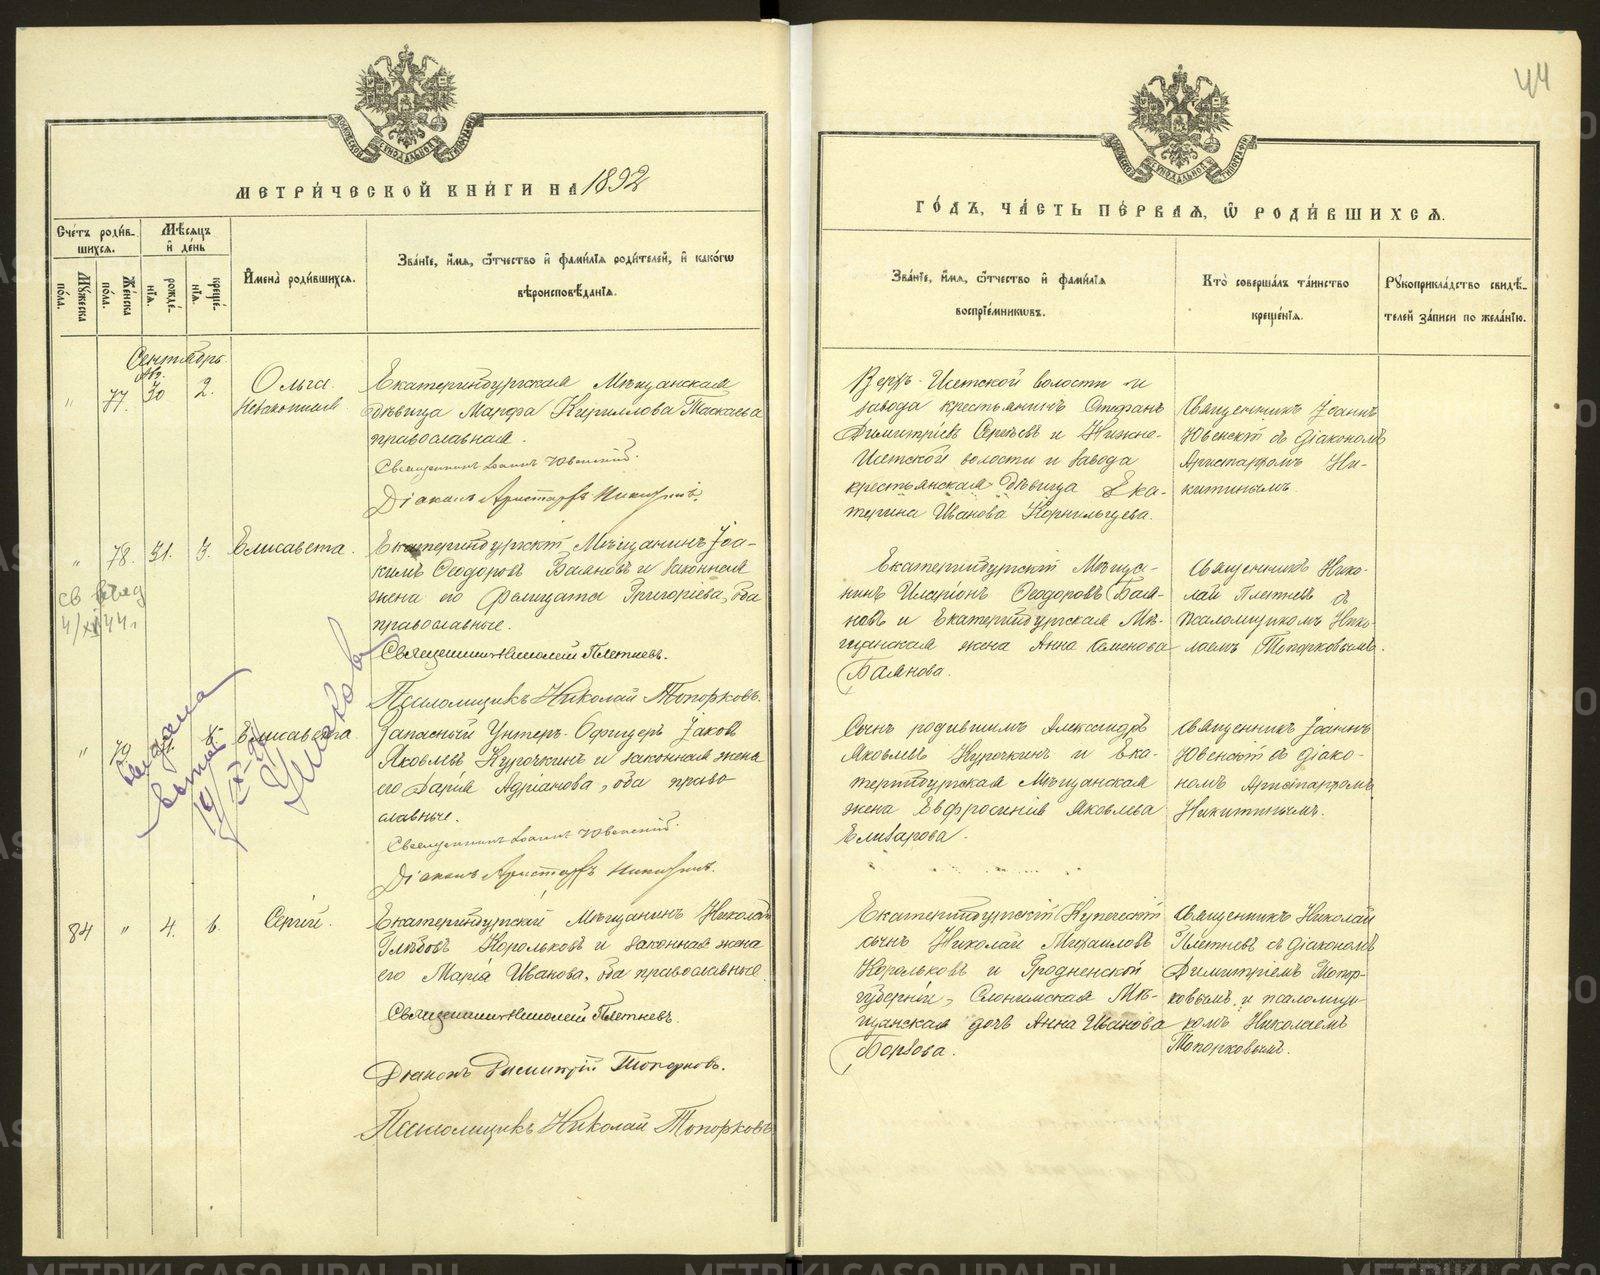 44
МОСКОВСКОЙ СѴНОДАЛЬНОЙ ТИПОГРАФІИ
МЕТРИ́ЧЕСКОЙ КНИ́ГИ НА 1892
Счетъ роди́в-
шихся.
Мѣсяцъ
и҆ де́нь
Мꙋжеска
по́ла.
Же́нска
по́ла.
рожде́-
нїя.
креще́-
нїя.
И҆мена̀ роди́вшихся.
Зва́нїе, и҆́мя, ѻ҆́тчество и҆ фами́лїя роди́телей, и҆ како́гѡ
вѣроисповѣ́данїя.
Сентябрь
Авг.
" 77. 30 2.
Ольга
Незаконная
Екатеринбургская Мѣщанская
дѣвица Марфа Кириллова Таскаева
православная.
Священникъ Іоаннъ Ювенскій.
Діаконъ Аристархъ Никитинъ.
" 78. 31. 3. Елисавета.
Екатеринбургскій Мѣщанинъ Іоа-
кимъ Ѳеодоровъ Баяновъ и законная
жена его Фелицата Григоріева, оба
православные.
Священникъ Николай Плетневъ.
Псаломщикъ Николай Топорковъ.
св выд
4/XI 44 г
" 79 Елисавета
Запасный Унтеръ-Офицеръ Іаковъ
Яковлевъ Курочкинъ и законная жена
его Дарія Адріанова, оба право-
славные.
Священникъ Іоаннъ Ювенскій.
Діаконъ Аристархъ Никитинъ.
Выдана
выпись
19/IX-
Ушакова
84 " 4. 6. Сергій.
Екатеринбургскій Мѣщанинъ Николай
Глѣбовъ Корольковъ и законная жена
его Марія Иванова, оба православные
Священникъ Николай Плетневъ.
Діаконъ Димитрій Топорковъ.
Псаломщикъ Николай Топорковъ
МОСКОВСКОЙ СѴНОДАЛЬНОЙ ТИПОГРАФІИ
ГО́ДЪ, ЧА́СТЬ ПЕ́РВАЯ, Ѽ РОДИ́ВШИХСЯ.
Зва́нїе, и҆́мя, ѻ҆́тчество и҆ фами́лїя
воспрїе́мникѡвъ.
Кто̀ соверша́лъ та́инство
креще́нїя.
Рꙋкоприкла́дство свидѣ́-
телей за́писи по жела́нїю.
Верхъ-Исетской волости и
завода крестьянинъ Стефанъ
Димитріевъ Сергѣевъ и Нижне-
Исетской волости и завода
крестьянская дѣвица Ека-
терина Иванова Корнильцева.
Священникъ Іоаннъ
Ювенскій съ діакономъ
Аристархомъ Ни-
китинымъ.
Екатеринбургскій Мѣща-
нинъ Иларіонъ Ѳеодоровъ Бая-
новъ и Екатеринбургская Мѣ-
щанская жена Анна Семенова
Баянова.
Священникъ Нико-
лай Плетневъ съ
псаломщикомъ Нико-
лаемъ Топорковымъ.
Сынъ родившихъ Александръ
Яковлевъ Курочкинъ и Ека-
теринбургская Мѣщанская
жена Евфросинія Яковлева
Елизарова.
Священникъ Іоаннъ
Ювенскій съ діако-
номъ Аристархомъ
Никитинымъ.
Екатеринбургскій Купеческій
сынъ Николай Михаиловъ
Корольковъ и Гродненской
губерніи, Слонимская Мѣ-
щанская дочь Анна Иванова
Борзова.
Священникъ Николай
Плетневъ съ діакономъ
Димитріемъ Топор-
ковымъ и псаломщи-
комъ Николаемъ
Топорковымъ.
METRIKI.GASO-URAL.RU